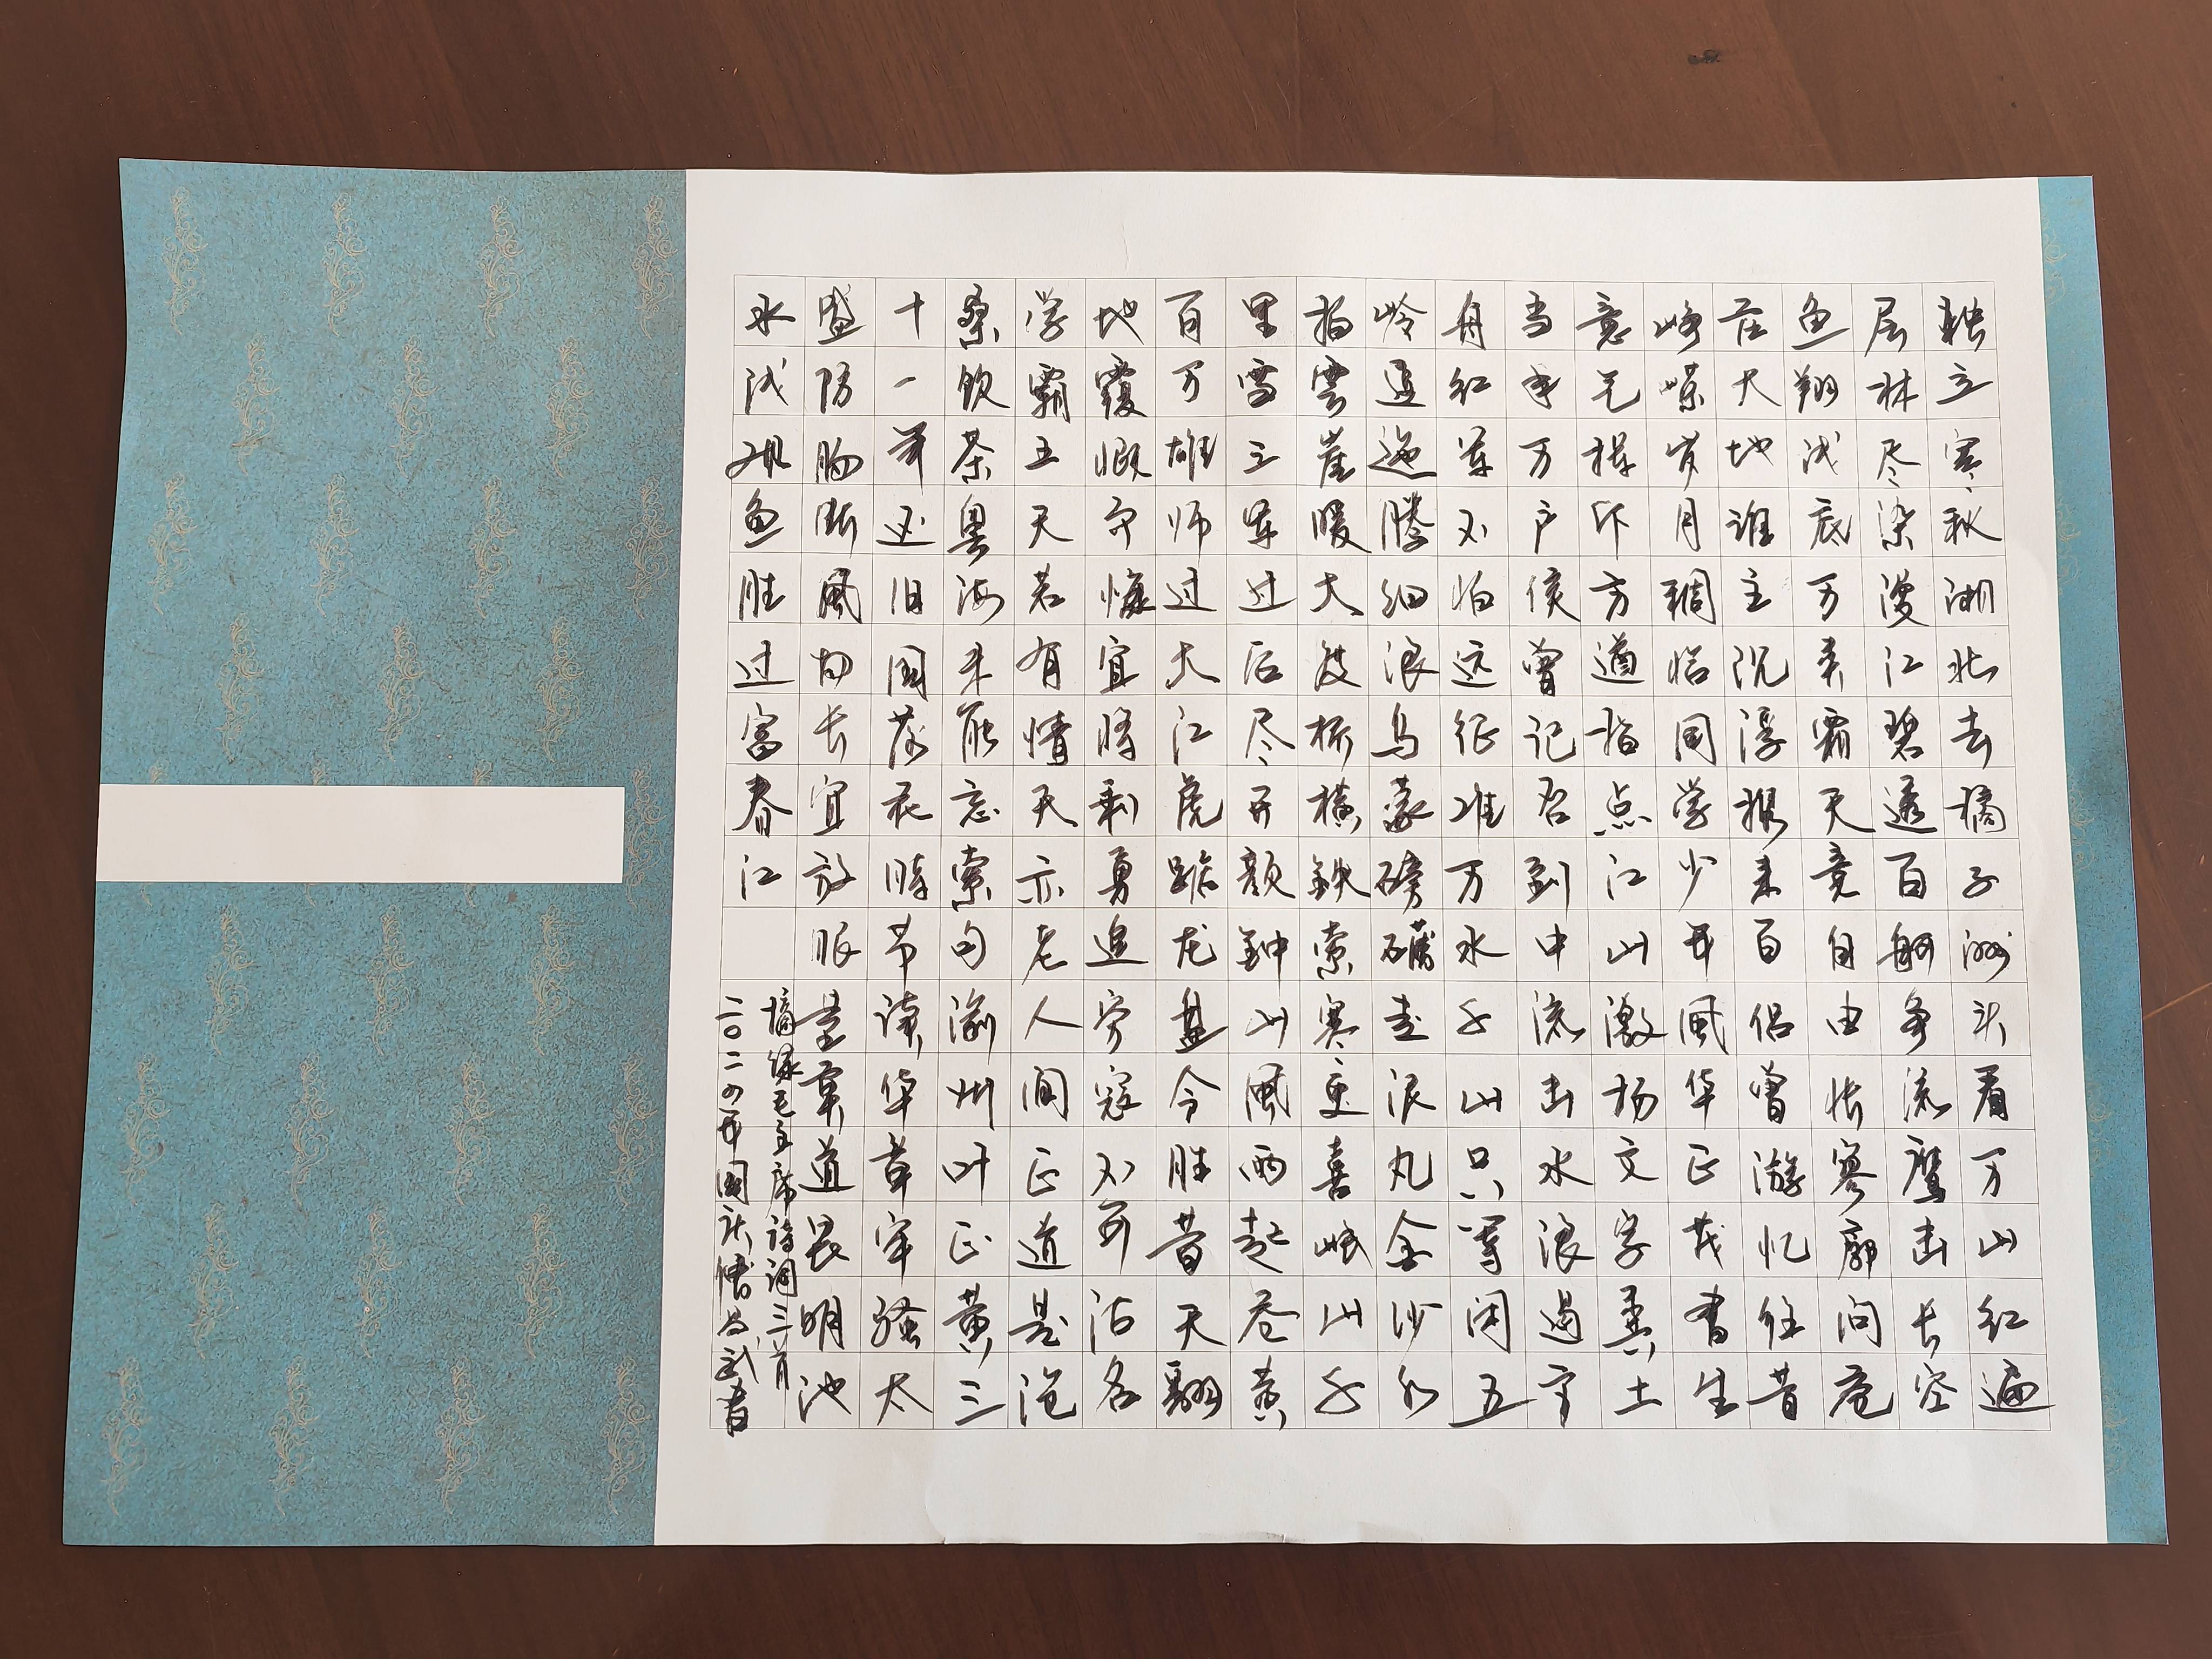 独立寒秋湘北去橘子洲头看万山红遍
层林尽染漫江碧透百舸争流鹰击长空
鱼翔浅底万类霜天竞自由怅寥廓问苍
茫大地谁主沉浮携来百侣曾游忆往昔
峥嵘岁月稠恰同学少年风华正茂书生
意气挥斥方遒指点江山激扬文字粪土
当年万户侯曾记否到中流击水浪遏飞
舟红军不怕远征难万水千山只等闲五
岭逶迤腾细浪乌蒙磅礴走泥丸金沙水
拍雲崖暖大渡桥横鉄索寒更喜岷山千
里雪三军过后尽开颜钟山风雨起苍黄
百万雄师过大江虎踞龙盘今胜昔天翻
地覆慨而慷宜将剩勇追穷寇不可沽名
学霸王天若有情天亦老人间正道是沧
桑饮茶粤海未能忘索句渝州叶正黄三
十一年还旧国落花时节读华章牢骚太
盛防肠断风物长宜放眼量莫道昆明池
水浅观鱼胜过富春江
摘录毛主席诗词三首
二〇二四年国庆 书